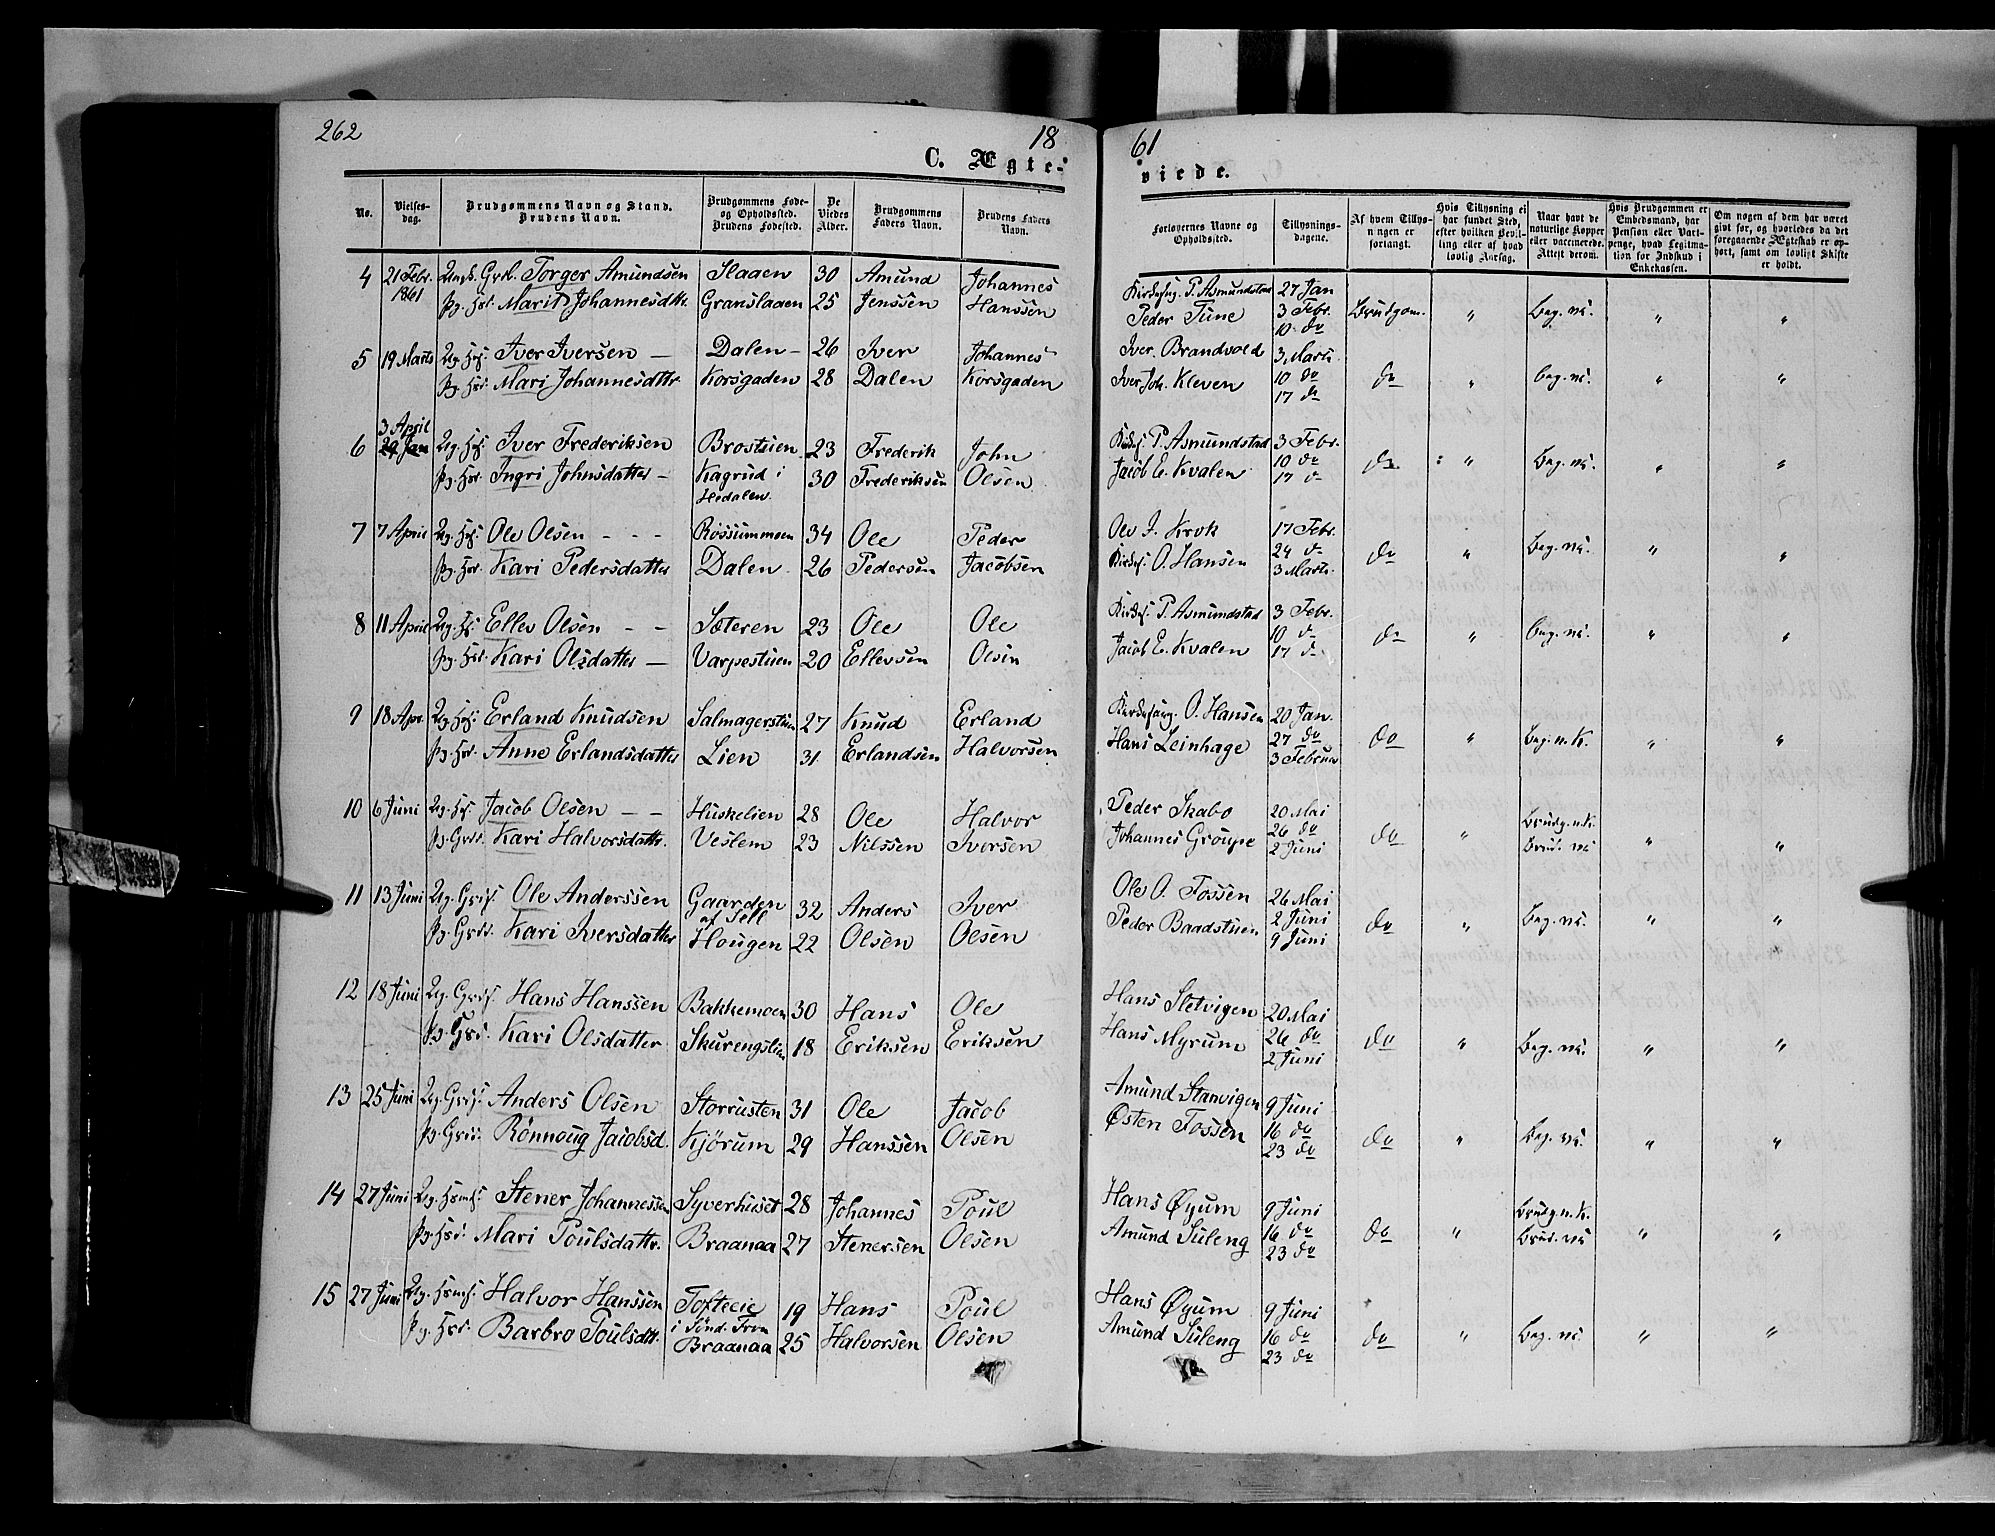 262
18
61
C. Ægte-
viede.
No.
Vielses-
dag.
Brudgommens Navn og Stand.
Brudens Navn.
Brudgommens Føde-
og Opholdssted.
Brudens Fødested.
De
Viedes
Alder.
Brudgommens
Faders Navn.
Brudens Faders
Navn.
Forlovernes Navne og
Opholdssted.
Tillysnings-
dagene.
Af hvem Tillys-
ningen er
forlangt.
Hvis Tillysning ei
har fundet Sted,
efter hvilken Bevil-
ling eller af hvad
lovlig Aarsag.
Naar havt de
naturlige Kopper
eller vaccinerede.
Attest derom.
Hvis Brudgommen er
Embedsmand, har
Pension eller Vart-
penge, hvad Legitima-
tion for Indskud i
Enkekassen.
Om nogen af dem har været
gift før, og hvorledes da det
foregaaende Ægteskab er op-
hørt, samt om lovligt Skifte
er holdt.
4 21 Febr. Torger Amundsen Slaaen 30 Amund Johannes
1861 Marit Johannesdtr. Granslaaen 25 Jenssen Hanssen
P. Asmundstad 27 Jan
Peder Tune 3 Febr. Brudgom. " Beg. va. " "
10 do
5 19 Marts Ug. Iver Iversen — Dalen — 26 Iver Johannes
Pg. Mari Johannesdttr. Korsgaden 28 Dalen Korsgaden
Iver Brandvold 3 Marts
Iver Joh. Kleven 10 do do " Beg. va. " "
17 do
3 April
6 29 Jan Ug. Iver Frederiksen Brostuen 23 Frederik John
Pg. Ingri Johnsdatter — Kagrud i 30 Frederiksen Olsen
Hedalen
P. Asmundstad 3 Febr.
Jacob E. Kvalen 10 do do " Beg. va. " "
17 do
7 7 April Ug. Ole Olsen - - - Rossummoen 34 Ole Peder
Pg. Kari Pedersdatter Dalen 26 Pedersen Jacobsen
Ole J. Krok 17 Febr.
O. Hansen 24 do do " Beg. va. " "
3 Marts
8 11 April Ug. Ellev Olsen - - Sæteren 23 Ole Ole
Pg. Kari Olsdatter — Varpestuen 20 Ellevsen Olsen
P. Asmundstad 3 Febr.
Jacob E. Kvalen 10 do do " Beg. va. " "
17 do
9 18 Apr. Ug. Erland Knudsen Salmagerstuen 27 Knud Erland
Pg. Anne Erlandsdatter Lien 31 Erlandsen Halvorsen
O. Hansen 20 Jan.
Hans Leinhage 27 do do " Beg. n. K. " "
3 Februar
10 6 Juni Ug. Jacob Olsen - - Huskelien 28 Ole Halvor
Pg. Kari Halvorsdattr. Veslem 23 Nilssen Iversen
Peder Skabo 20 Mai Brudg. n. K.
Johannes Groupe 26 do do " Brud. va " "
2 Juni
11 13 Juni Ug. Ole Anderssen Gaarden 32 Anders Iver
af Sell
Pg. Kari Iversdatter Hougen 22 Olsen Olsen
Ole O. Fossen 26 Mai
Peder Baadstuen 2 Juni do " Beg. va. " "
9 Juni
12 18 Juni Ug. Hans Hanssen Bakkemoen 30 Hans Ole
Pg. Kari Olsdatter Skurengslien 18 Eriksen Eriksen
Hans Sletvigen 20 Mai
Hans Myrum 26 do do " Beg. va. " "
2 Juni
13 25 Juni Ug. Anders Olsen Storrusten 31 Ole Jacob
Pg. Rönnoug Jacobsd. Kjörum 29 Hanssen Olsen
Amund Stanvigen 9 Juni
Østen Fossen 16 do do " Beg. va. " "
23 do
14 27 Juni Ug. Stener Johannessen Syverhuset 28 Johannes Poul
Pg. Mari Poulsdattr. Braanaa 27 Stenersen Olsen
Hans Øyum 9 Juni Brudg. n. K.
Amund Suleng 16 do do " Brud. va " "
23 do
15 27 Juni Ug. Halvor Hanssen Tofteeie 19 Hans Poul
i Sönd. Fron
Pg. Barbro Poulsdtr. Braanaa 25 Halvorsen Olsen
Hans Øyum 9 Juni
Amund Suleng 16 do do " Beg. va. " "
23 do